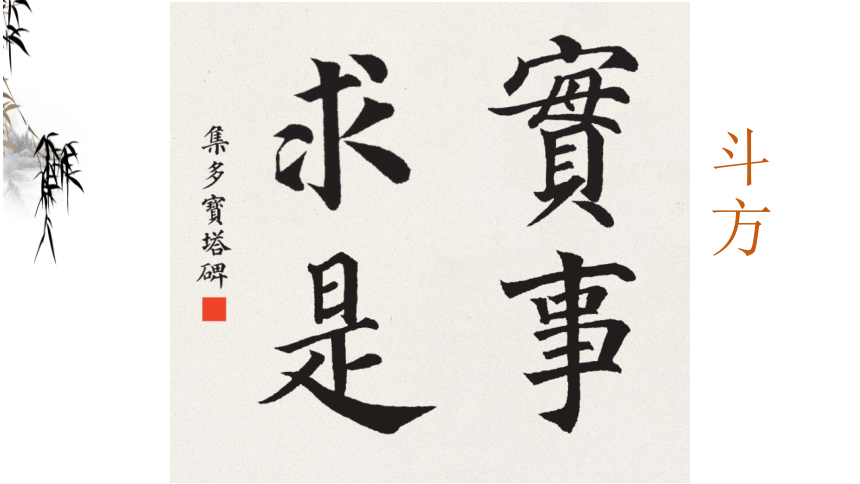 斗方
實事
求是
集多寶塔碑